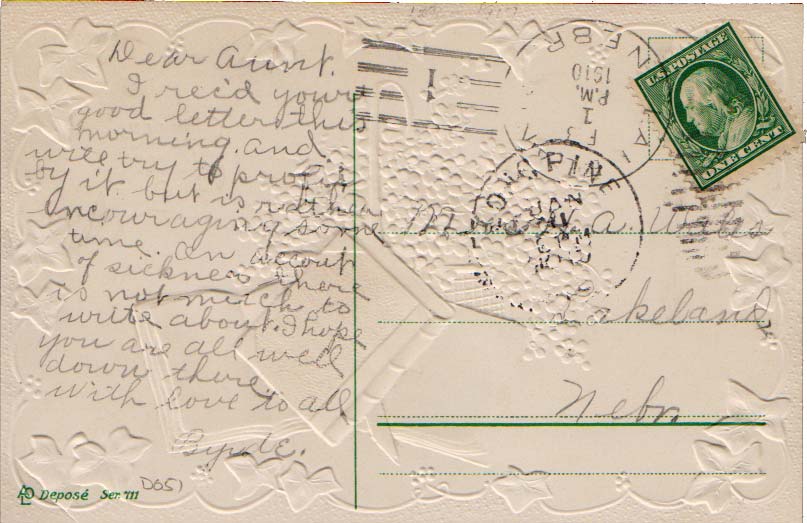 Dear Aunt.
I rec'd your
good letter this
morning. and
will try to profit
by it. but is rather
encouraging some
time. on account
of sickness there
is not much to
write about. I hope
you are all well
down there
With love to all
NEBR
1910
P.M.
1
U.S. POSTAGE
ONE CENT
LONG PINE
JAN
Lakeland
Nebr
Deposé Ser. 711
D051